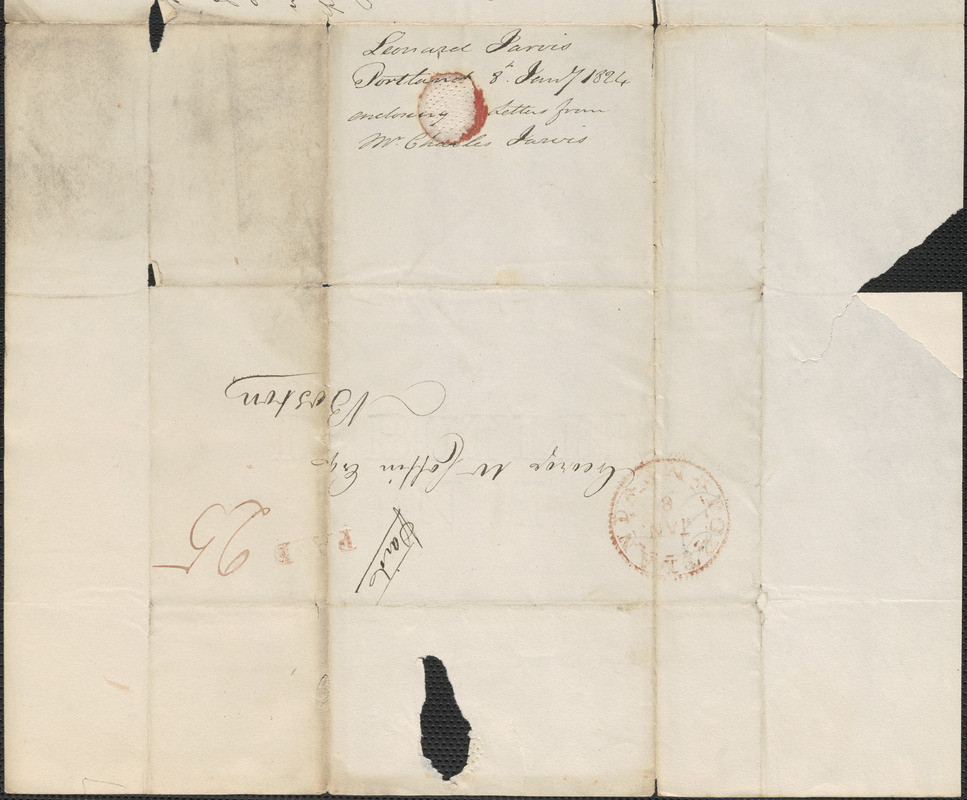 Leonard Jarvis
Portland 8th. Jany 1824
enclosing letters from
Mr. Charles Jarvis
George W Coffin Esqr
Boston
Paid
PAID
25
PORTLAND
JAN
8